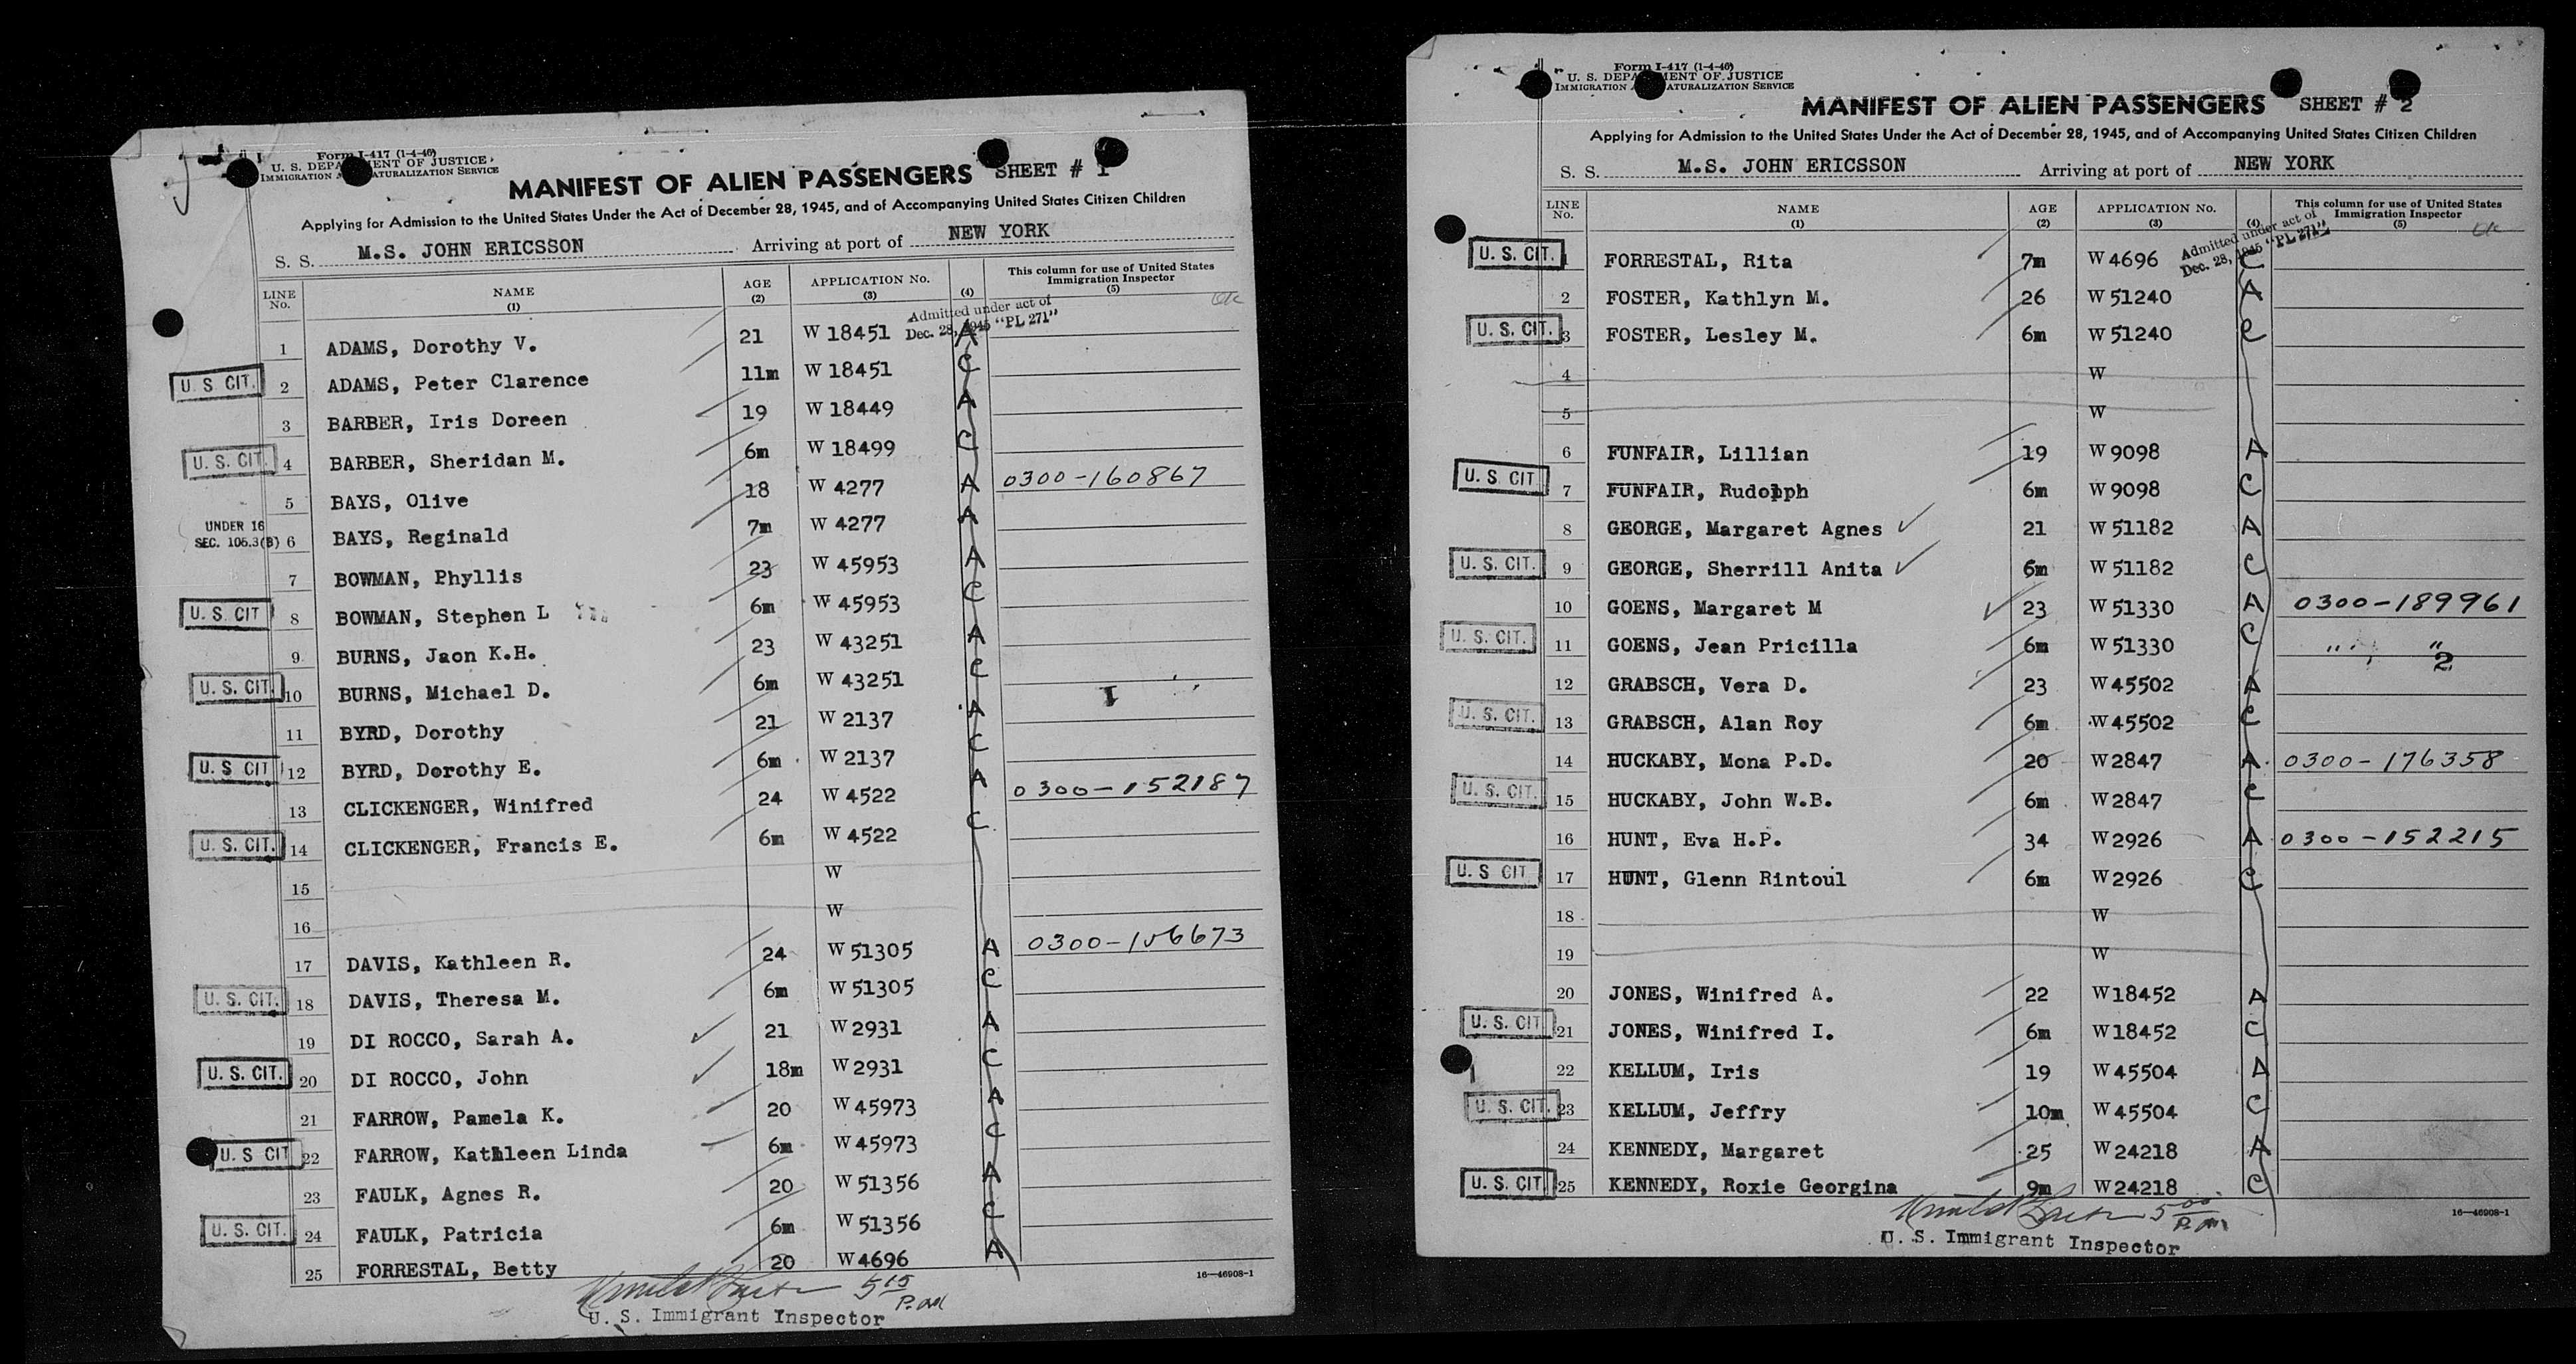 Form I-417 (1-4-46)
U. S. DEPA MENT OF JUSTICE
IMMIGRATION ATURALIZATION SERVICE
MANIFEST OF ALIEN PASSENGERS SHEET # 1
Applying for Admission to the United States Under the Act of December 28, 1945, and of Accompanying United States Citizen Children
S. S. M.S. JOHN ERICSSON Arriving at port of NEW YORK
LINE No. NAME (1) AGE (2) APPLICATION No. (3) (4) This column for use of United States Immigration Inspector (5)
Admitted under act of Dec. 28, 1945 "PL 271" Ok
1 ADAMS, Dorothy V. 21 W 18451 A
U. S. CIT. 2 ADAMS, Peter Clarence 11m W 18451 C
3 BARBER, Iris Doreen 19 W 18449 A
U. S. CIT. 4 BARBER, Sheridan M. 6m W 18499 C
5 BAYS, Olive 18 W 4277 A 0300-160867
UNDER 16 SEC. 106.3(B) 6 BAYS, Reginald 7m W 4277 A
7 BOWMAN, Phyllis 23 W 45953 A
U. S. CIT 8 BOWMAN, Stephen L 6m W 45953 C
9 BURNS, Jaon K.H. 23 W 43251 A
U. S. CIT. 10 BURNS, Michael D. 6m W 43251 C 1
11 BYRD, Dorothy 21 W 2137 A
U. S CIT 12 BYRD, Dorothy E. 6m W 2137 C
13 CLICKENGER, Winifred 24 W 4522 A 0300-152187
U. S. CIT. 14 CLICKENGER, Francis E. 6m W 4522 C
15 W
16 W
17 DAVIS, Kathleen R. 24 W 51305 A 0300-156673
U. S. CIT. 18 DAVIS, Theresa M. 6m W 51305 C
19 DI ROCCO, Sarah A. 21 W 2931 A
U. S. CIT. 20 DI ROCCO, John 18m W 2931 C
21 FARROW, Pamela K. 20 W 45973 A
U. S CIT 22 FARROW, Kathleen Linda 6m W 45973 C
23 FAULK, Agnes R. 20 W 51356 A
U. S. CIT. 24 FAULK, Patricia 6m W 51356 C
25 FORRESTAL, Betty 20 W 4696 A
5 15 P.M
16—46908-1
U. S. Immigrant Inspector
Form I-417 (1-4-46)
U. S. DEPA MENT OF JUSTICE
IMMIGRATION ATURALIZATION SERVICE
MANIFEST OF ALIEN PASSENGERS SHEET # 2
Applying for Admission to the United States Under the Act of December 28, 1945, and of Accompanying United States Citizen Children
S. S. M.S. JOHN ERICSSON Arriving at port of NEW YORK
LINE No. NAME (1) AGE (2) APPLICATION No. (3) (4) This column for use of United States Immigration Inspector (5)
Admitted under act of Dec. 28, 1945 "PL 271" Ok
U. S. CIT. 1 FORRESTAL, Rita 7m W 4696 C
2 FOSTER, Kathlyn M. 26 W 51240 A
U. S. CIT. 3 FOSTER, Lesley M. 6m W 51240 C
4 W
5 W
6 FUNFAIR, Lillian 19 W 9098 A
U. S. CIT 7 FUNFAIR, Rudolph 6m W 9098 C
8 GEORGE, Margaret Agnes 21 W 51182 A
U. S. CIT. 9 GEORGE, Sherrill Anita 6m W 51182 C
10 GOENS, Margaret M 23 W 51330 A 0300-189961
U. S. CIT. 11 GOENS, Jean Pricilla 6m W 51330 C " " 2
12 GRABSCH, Vera D. 23 W 45502 A
U. S. CIT. 13 GRABSCH, Alan Roy 6m W 45502 C
14 HUCKABY, Mona P.D. 20 W 2847 A 0300-176358
U. S. CIT. 15 HUCKABY, John W.B. 6m W 2847 C
16 HUNT, Eva H.P. 34 W 2926 A 0300-152215
U. S CIT 17 HUNT, Glenn Rintoul 6m W 2926 C
18 W
19 W
20 JONES, Winifred A. 22 W 18452 A
U. S. CIT 21 JONES, Winifred I. 6m W 18452 C
22 KELLUM, Iris 19 W 45504 A
U. S. CIT. 23 KELLUM, Jeffry 10m W 45504 C
24 KENNEDY, Margaret 25 W 24218 A
U. S. CIT. 25 KENNEDY, Roxie Georgina 9m W 24218 C
5 00 P.M
16—46908-1
U. S. Immigrant Inspector